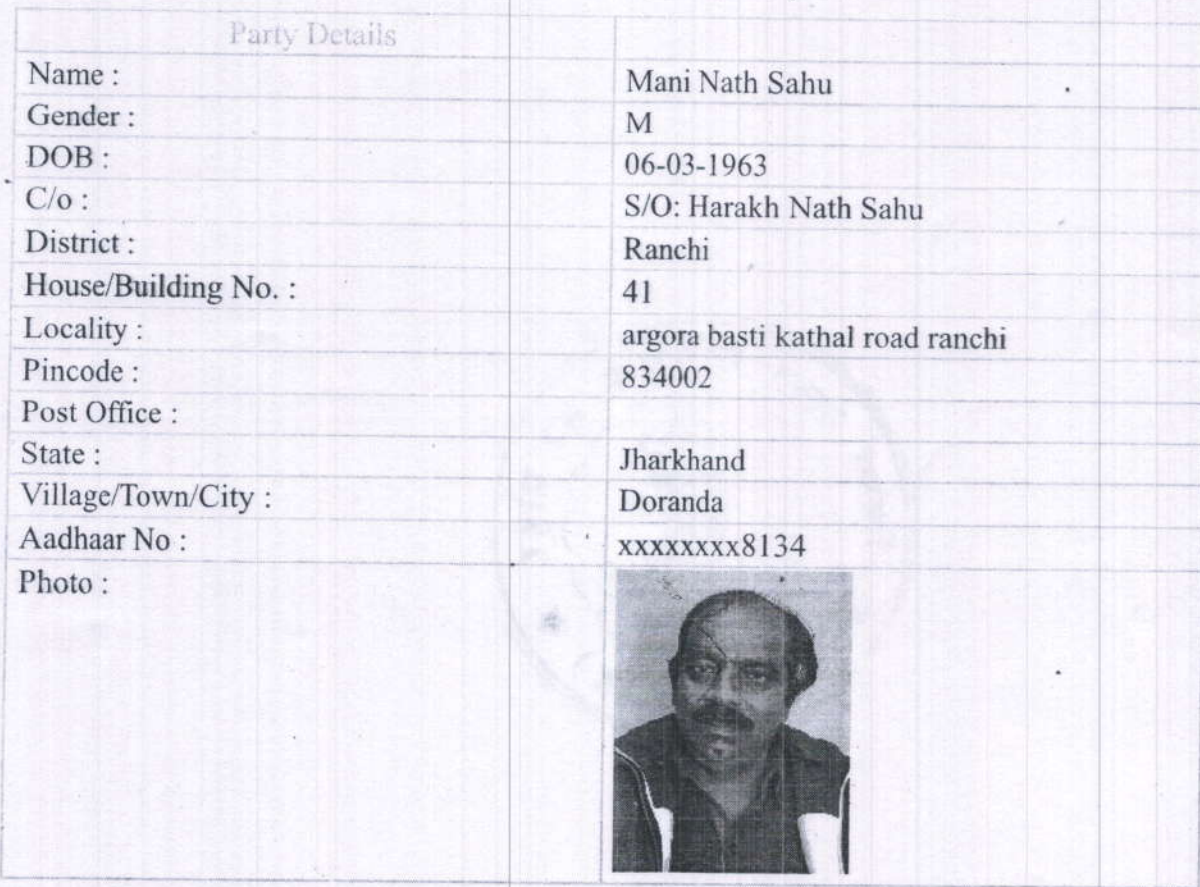 Party Details
Name : Mani Nath Sahu
Gender : M
DOB : 06-03-1963
C/o : S/O: Harakh Nath Sahu
District : Ranchi
House/Building No. : 41
Locality : argora basti kathal road ranchi
Pincode : 834002
Post Office :
State : Jharkhand
Village/Town/City : Doranda
Aadhaar No : xxxxxxxx8134
Photo :